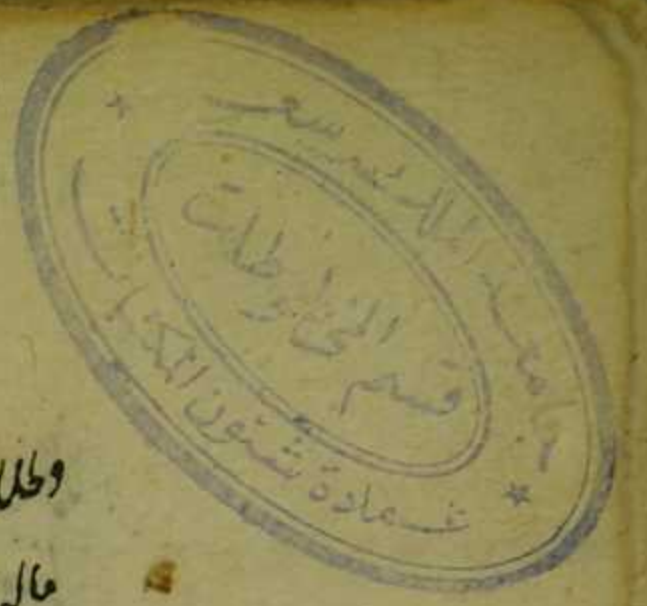 جامعة الملك سعود
قسم المخطوطات
عمادة شئون المكتبات
وطلا
مال